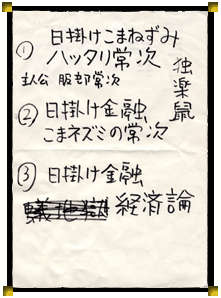 ① 日掛けこまねずみ
ハッタリ常次
主人公 服部常次
独楽鼠
② 日掛け金融
こまネズミの常次
③ 日掛け金融
蟻地獄 経済論